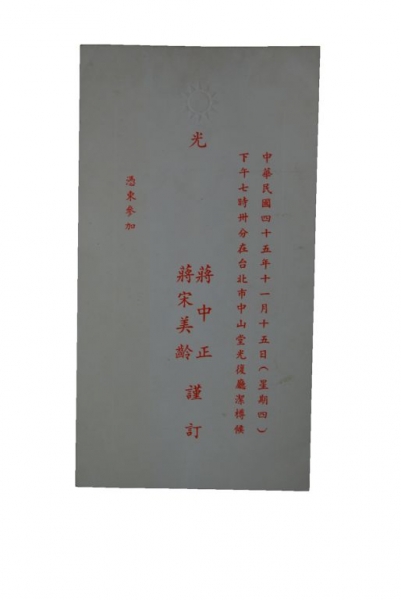 中華民國四十五年十一月十五日(星期四)
下午七時卅分在台北市中山堂光復廳潔樽候
光
蔣中正
蔣宋美齡
謹訂
憑柬參加